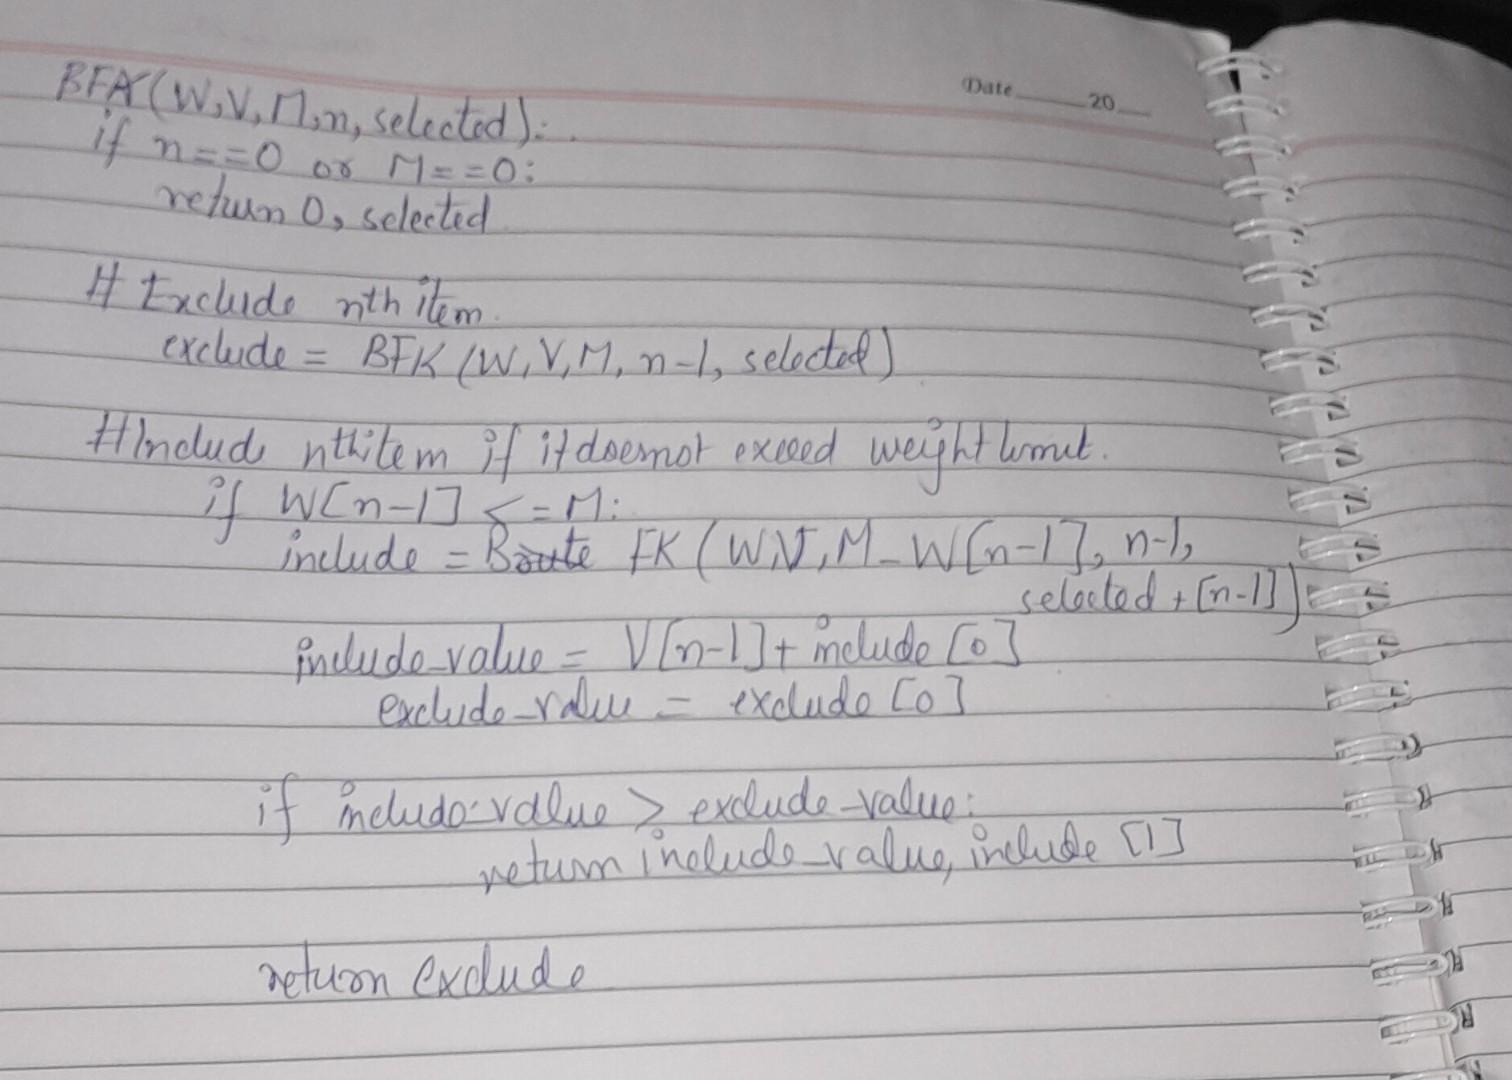 Date 20
BFK(W,V,M,n, selected):
if n==0 or M==0:
return 0, selected
# Exclude nth item.
exclude = BFK (W,V,M, n-1, selected)
# Include nth item if it does not exceed weight limit.
if W[n-1] <= M:
include = Brute FK (W,V,M-W[n-1], n-1,
selected + [n-1])
include_value = V[n-1] + include [0]
exclude_value = exclude [0]
if include-value > exclude-value:
return include_value, include [1]
return exclude